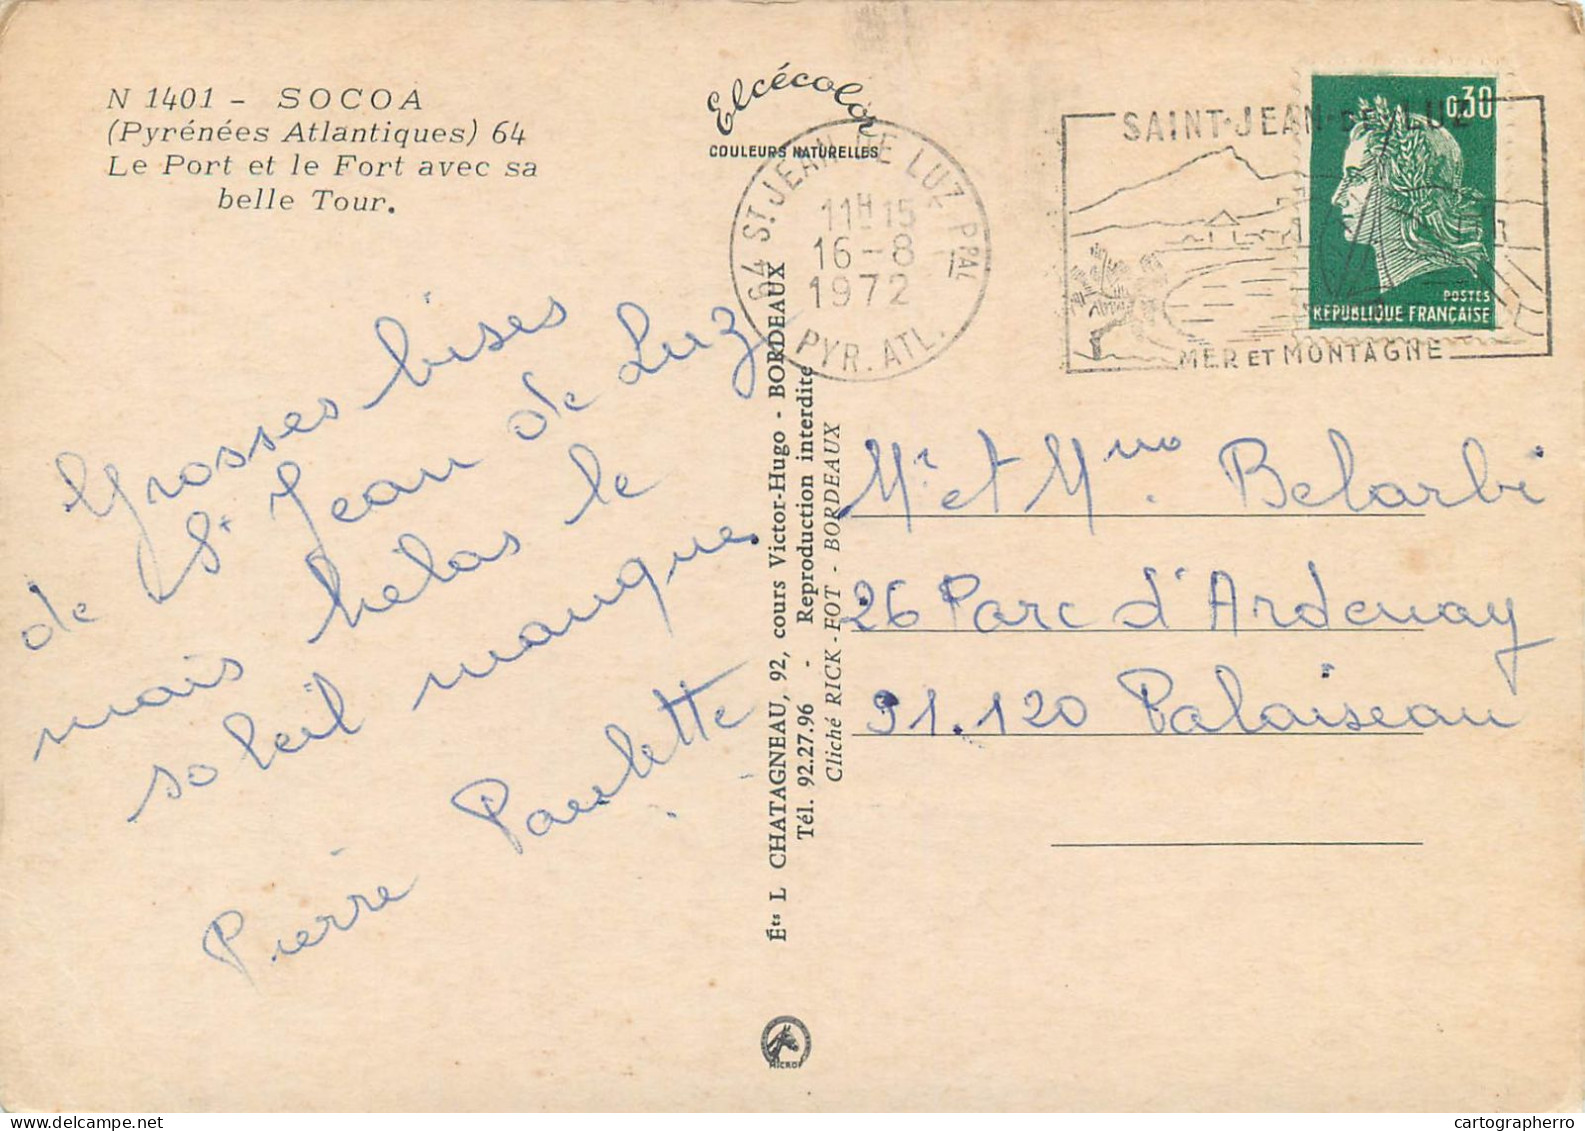 N 1401 - SOCOA
(Pyrénées Atlantiques) 64
Le Port et le Fort avec sa
belle Tour.
Elcécolor
COULEURS NATURELLES
64 ST JEAN DE LUZ PPAL
11H15
16-8
1972
PYR. ATL.
SAINT-JEAN-DE-LUZ
MER ET MONTAGNE
0,30
POSTES
RÉPUBLIQUE FRANÇAISE
Grosses bises
de St Jean de Luz
mais hélas le
soleil manque.
Paulette
Pierre
Éts L CHATAGNEAU, 92, cours Victor-Hugo - BORDEAUX
Tél. 92.27.96 - Reproduction interdite
Cliché RICK-FOT - BORDEAUX
Mr et Mme Belarbi
26 Parc d'Ardenay
91.120 Palaiseau
cartographerro